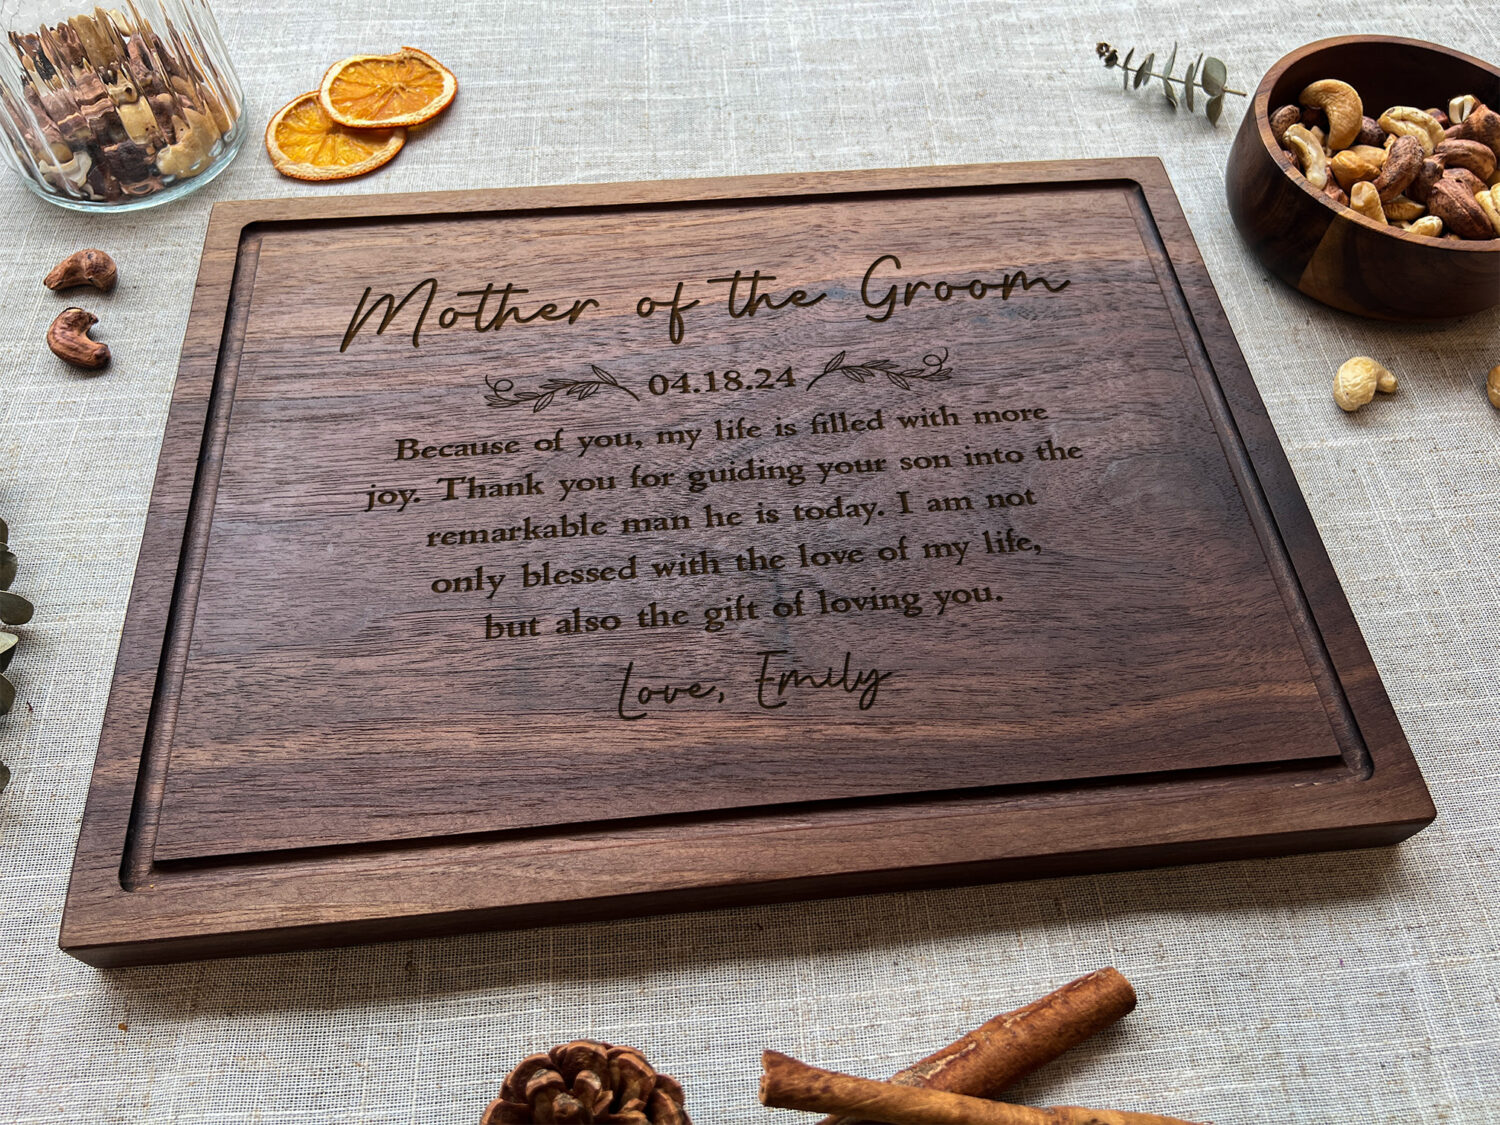 Mother of the Groom
04.18.24
Because of you, my life is filled with more
joy. Thank you for guiding your son into the
remarkable man he is today. I am not
only blessed with the love of my life,
but also the gift of loving you.
Love, Emily